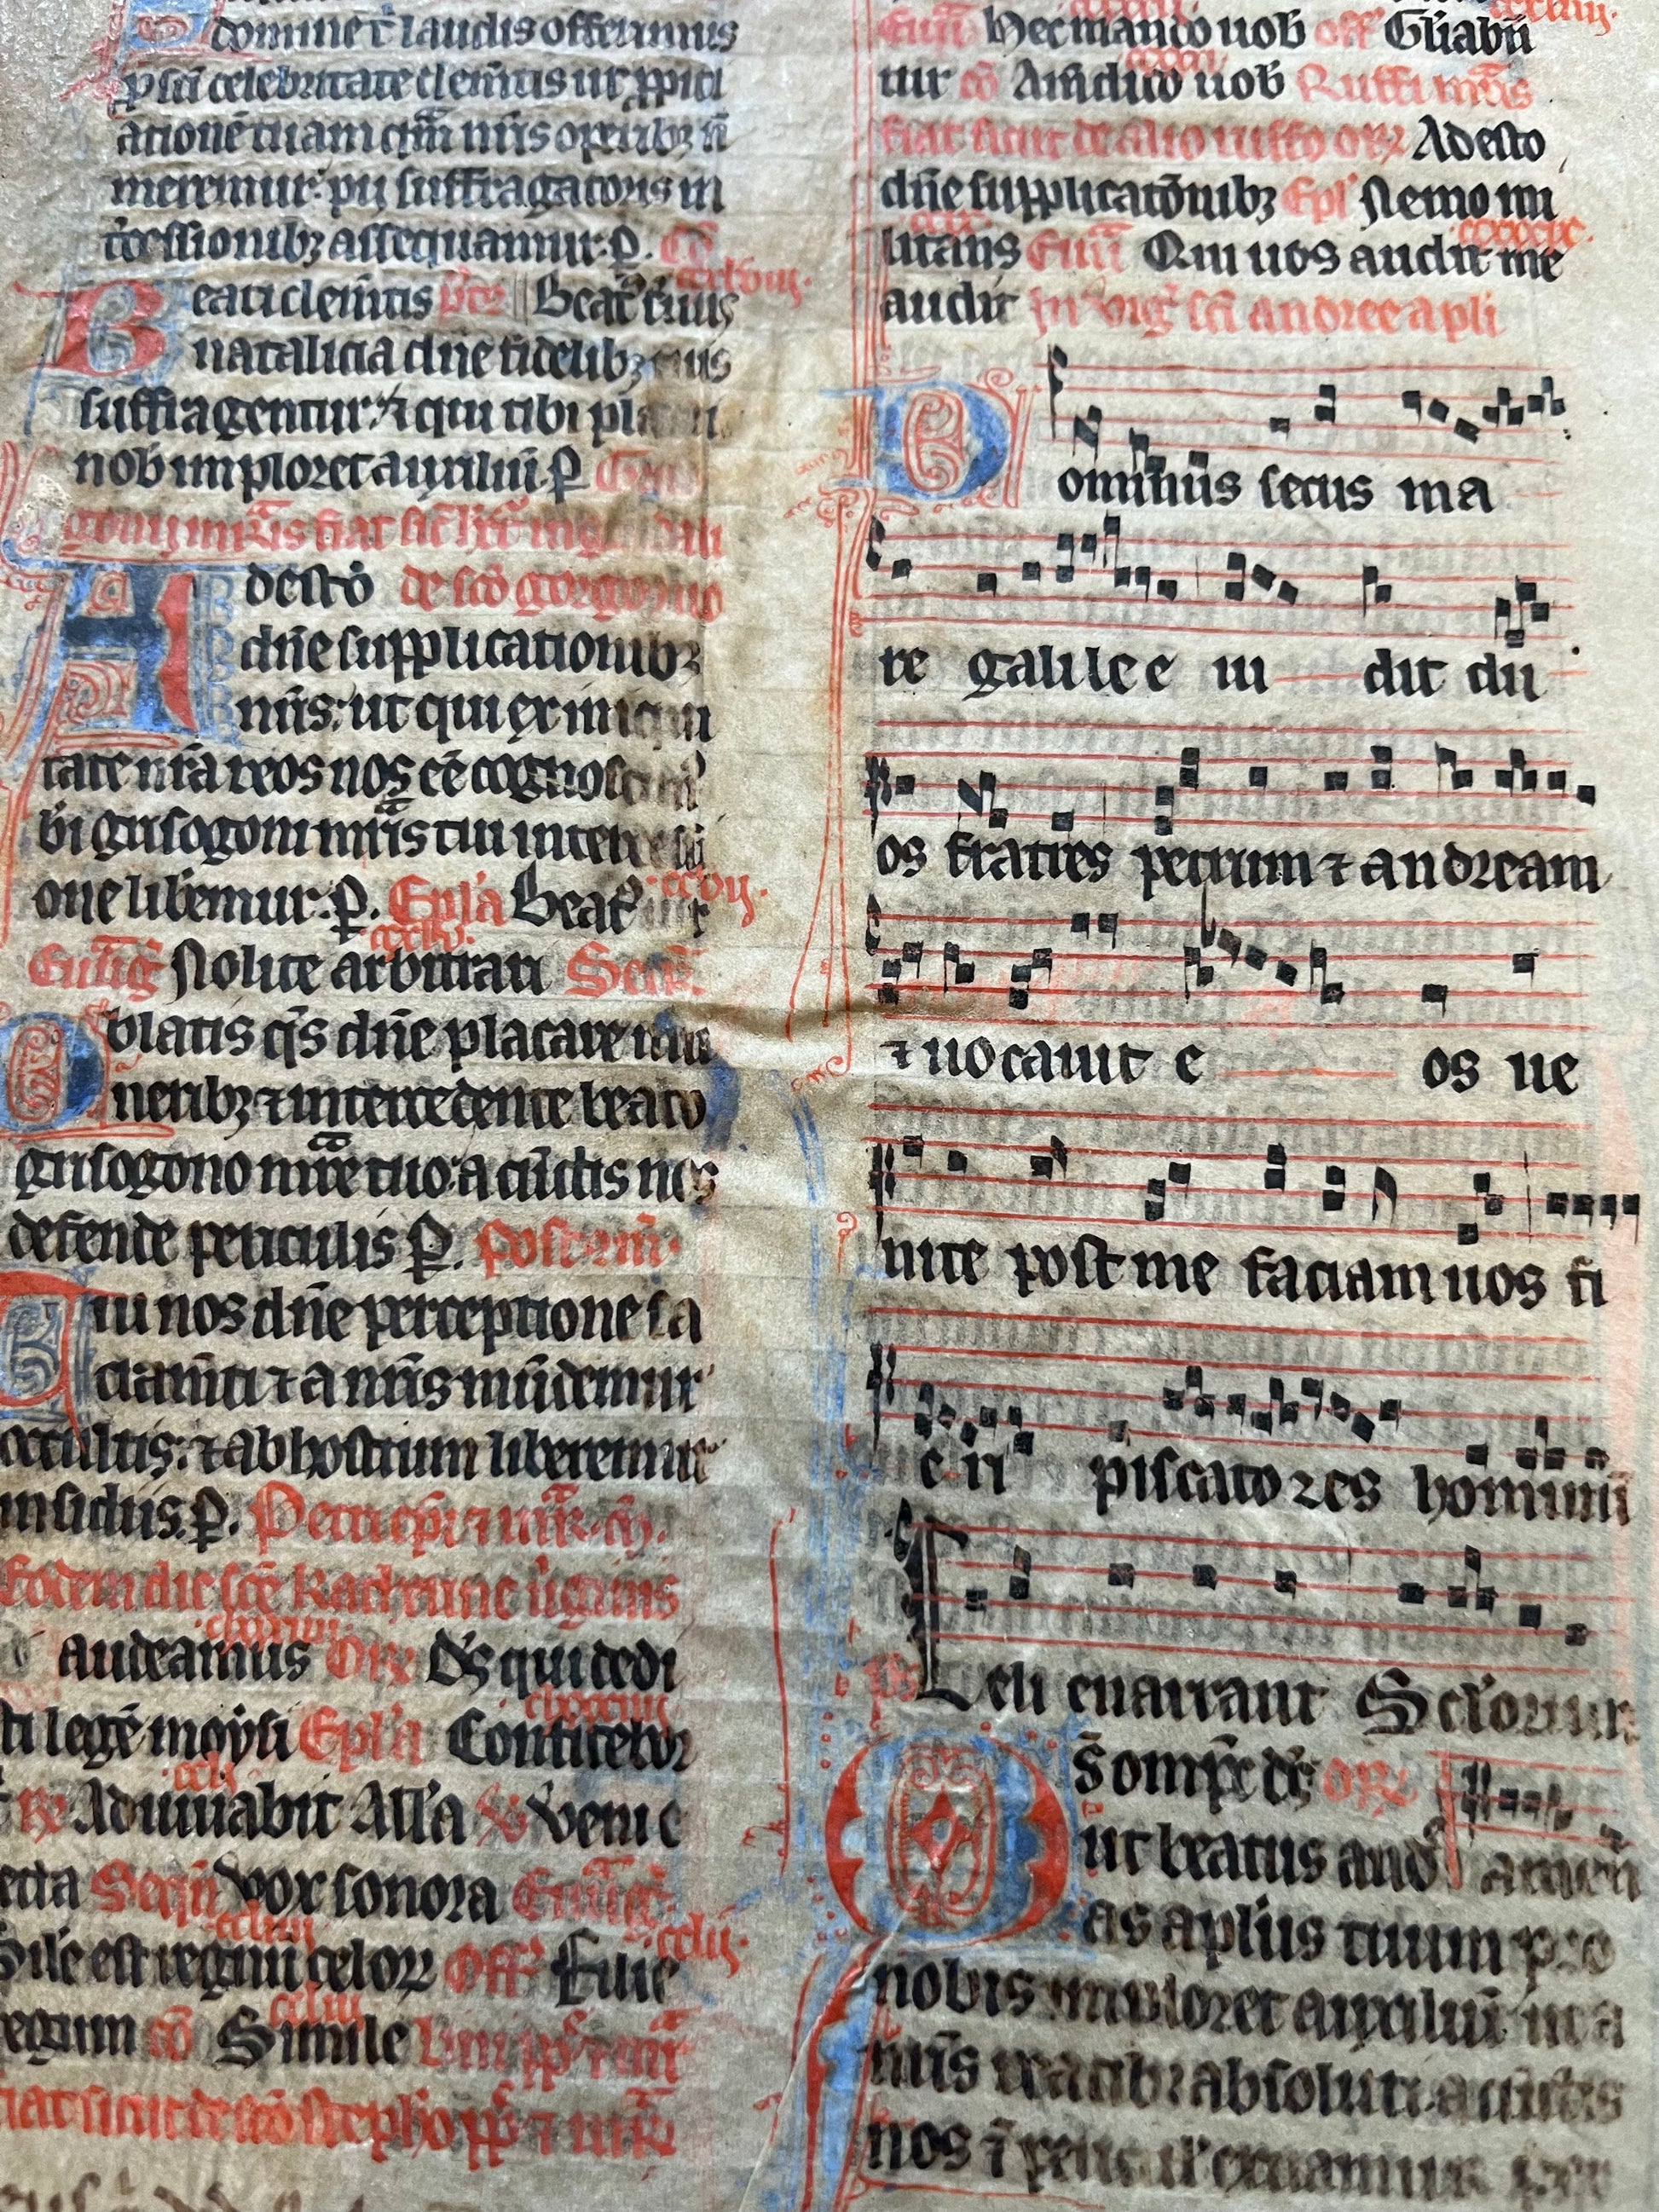 domine t laudis offerimus
p sci celebritate clemtis ut ppici
atione tuam qm nris operibz n
meremur: pij suffragatoris in
tcessionibz assequamur. p. Co
eati clemtis
natalicia dne fidelibz tuis
suffragentur: ⁊ qui tibi
nob imploret auxiliu. p
desto de sco gorgonio
dne supplicationibz
nris: ut qui ex iniqui
tate nra reos nos ee
bi grisogoni mris tui
one libemur: p. Epla Beat
Nolite arbitrari Secr.
blatis qs dne placare
neribz ⁊ intercedente beato
grisogono mre tuo: a cuctis nos
defende periculis p.
ui nos dne perceptione sa
crameti ⁊ a nris mudemur
occultis: ⁊ ab hostium liberemur
insidiis. p. Petri epi ⁊ mr.
Eodem die sce Katherine uginis
audeamus Or Ds qui dedi
sti lege moysi Epla Confitebor
Adiuuabit All'a v Veni e
lecta Sequ vox sonora
Sile est regnu celor Off Filie
regum co Simile
fiat sicut de sco stepho pp ⁊ mr
Hec mando uob off Gliabu
tur co Am dico uob Ruffi mris
fiat sicut de alio ruffo or Adesto
dne supplicatonibz Epl Nemo mi
litans Qui uos audit me
audit In vig sci andree apli
ominus secus ma
re galilee ui dit du
os fratres petrum ⁊ andream
⁊ uocauit e os ue
nite post me faciam uos fi
e ri piscatores hominu
Celi enarrant Sclorum
s omps ds or
ut beatus and
as aplus tuum pro
nobis imploret auxiliu: ut a
nris reatibz absoluti a cuctis
nos